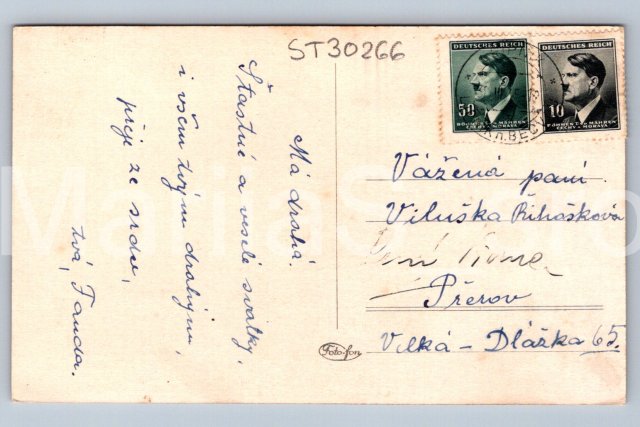 ST30266
DEUTSCHES REICH
50
BÖHMEN u. MÄHREN
ČECHY a MORAVA
DEUTSCHES REICH
10
BÖHMEN u. MÄHREN
ČECHY a MORAVA
Má drahá.
Šťastné a veselé svátky,
i všem tvým drahým,
přeje ze srdce,
tvá, Fanda.
Vážená paní
Viluška Řihošková
Přerov
Velká - Dlážka 65.
Foto-fon